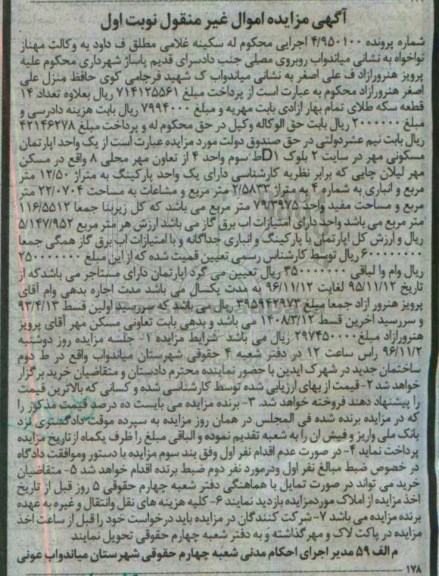 آگهی مزایده اموال غیر منقول نوبت اول
شماره پرونده ۴/۹۵۰۱۰۰ اجرایی محکوم له سکینه غلامی مطلق ف داود به وکالت مهناز
نواخواه به نشانی میاندواب روبروی مصلی جنب دادسرای قدیم پاساژ شهرداری محکوم علیه
پرویز هنرورازاد ف علی اصغر به نشانی میاندواب ک شهید فرجامی کوی حافظ منزل علی
اصغر هنرورازاد محکوم به عبارت است از پرداخت مبلغ ۷۱۴۱۲۵۵۶۱ ریال بعلاوه تعداد ۱۴
قطعه سکه طلای تمام بهار ازادی بابت مهریه و مبلغ ۷۹۹۴۰۰۰ ریال بابت هزینه دادرسی و
مبلغ ۲۰۰۰۰۰۰ ریال بابت حق الوکاله وکیل در حق محکوم له و پرداخت مبلغ ۴۲۱۴۶۲۷۸
ریال بابت نیم عشردولتی در حق صندوق دولت مورد مزایده عبارت است از یک واحد اپارتمان
مسکونی مهر در سایت ۲ بلوک D۱ط سوم واحد ۴ از تعاون مهر محلی ۸ واقع در مسکن
مهر لیلان چایی که برابر نظریه کارشناسی دارای یک واحد پارکینگ به متراژ ۱۲/۵۰ متر
مربع و انباری به شماره ۴ به متراژ ۲/۵۸۳۳ متر مربع و مشاعات به مساحت ۲۲/۰۷۰۴ متر
مربع و مساحت مفید واحد ۷۹/۳۹۷۵ متر مربع می باشد که کل زیربنا جمعا ۱۱۶/۵۵۱۲
متر مربع می باشد واحد دارای امتیازات اب برق گاز می باشد ارزش هر متر مربع ۵/۱۴۷/۹۵۲
ریال و ارزش کل اپارتمان با پارکینگ و انباری جداگانه و با امتیازات اب برق گاز همگی جمعا
۶۰۰۰۰۰۰۰۰ ریال توسط کارشناس رسمی تعیین قیمت شده که از این مبلغ ۲۵۰۰۰۰۰۰۰
ریال وام و الباقی ۳۵۰۰۰۰۰۰۰ ریال تعیین می گرد اپارتمان دارای مستاجر می باشدکه از
تاریخ ۹۵/۱۱/۱۲ لغایت ۹۶/۱۱/۱۲ به مدت یکسال می باشد مدت اجاره بدهی وام آقای
پرویز هنرور ازاد جمعا مبلغ ۳۹۵۹۴۲۹۷۳ ریال می باشد که سررسید اولین قسط ۹۳/۴/۱۳
و سررسید آخرین قسط ۱۴۰۸/۳/۱۲ می باشد و بدهی بابت تعاونی مسکن مهر آقای پرویز
هنرورازاد مبلغ ۲۹۷۴۵۰۰۰۰ ریال می باشد شرایط مزایده ۱- جلسه مزایده روز دوشنبه
۹۶/۱۱/۲ راس ساعت ۱۲ در دفتر شعبه ۴ حقوقی شهرستان میاندواب واقع در ط دوم
ساختمان جدید در شهرک ایدین با حضور نماینده محترم دادستان و متقاضیان خرید برگزار
خواهد شد ۲- قیمت از بهای ارزیابی شده توسط کارشناسی شده و کسانی که بالاترین قیمت
را پیشنهاد دهند فروخته خواهد شد. ۳- برنده مزایده می بایست ده درصد قیمت مذکور را
که در مزایده برنده شده فی المجلس در همان روز مزایده به سپرده موقت دادگستری نزد
بانک ملی واریز و فیش ان را به شعبه تقدیم نموده و الباقی مبلغ را ظرف یکماه از تاریخ مزایده
پرداخت نماید ۴- در صورت عدم اقدام نفر اول وفق بند سوم مزایده با دستور وموافقت دادگاه
در خصوص ضبط مبالغ نفر اول ودرمورد نفر دوم ضبط برنده اقدام خواهد شد ۵- متقاضیان
خرید می تواند در صورت تمایل با هماهنگی دفتر شعبه چهارم حقوقی ۵ روز قبل از تاریخ
اخذ مزایده از املاک موردمزایده بازدید نمایند ۶- کلیه هزینه های نقل وانتقال و غیره به عهده
برنده مزایده می باشد ۷- شرکت کنندگان در مزایده باید درخواست خود را قبل از ساعت اخذ
مزایده در پاکت لاک و مهر گذاشته و به دفتر شعبه چهارم حقوقی تحویل نمایند
م الف ۵۹ مدیر اجرای احکام مدنی شعبه چهارم حقوقی شهرستان میاندواب عونی
۱۷۸